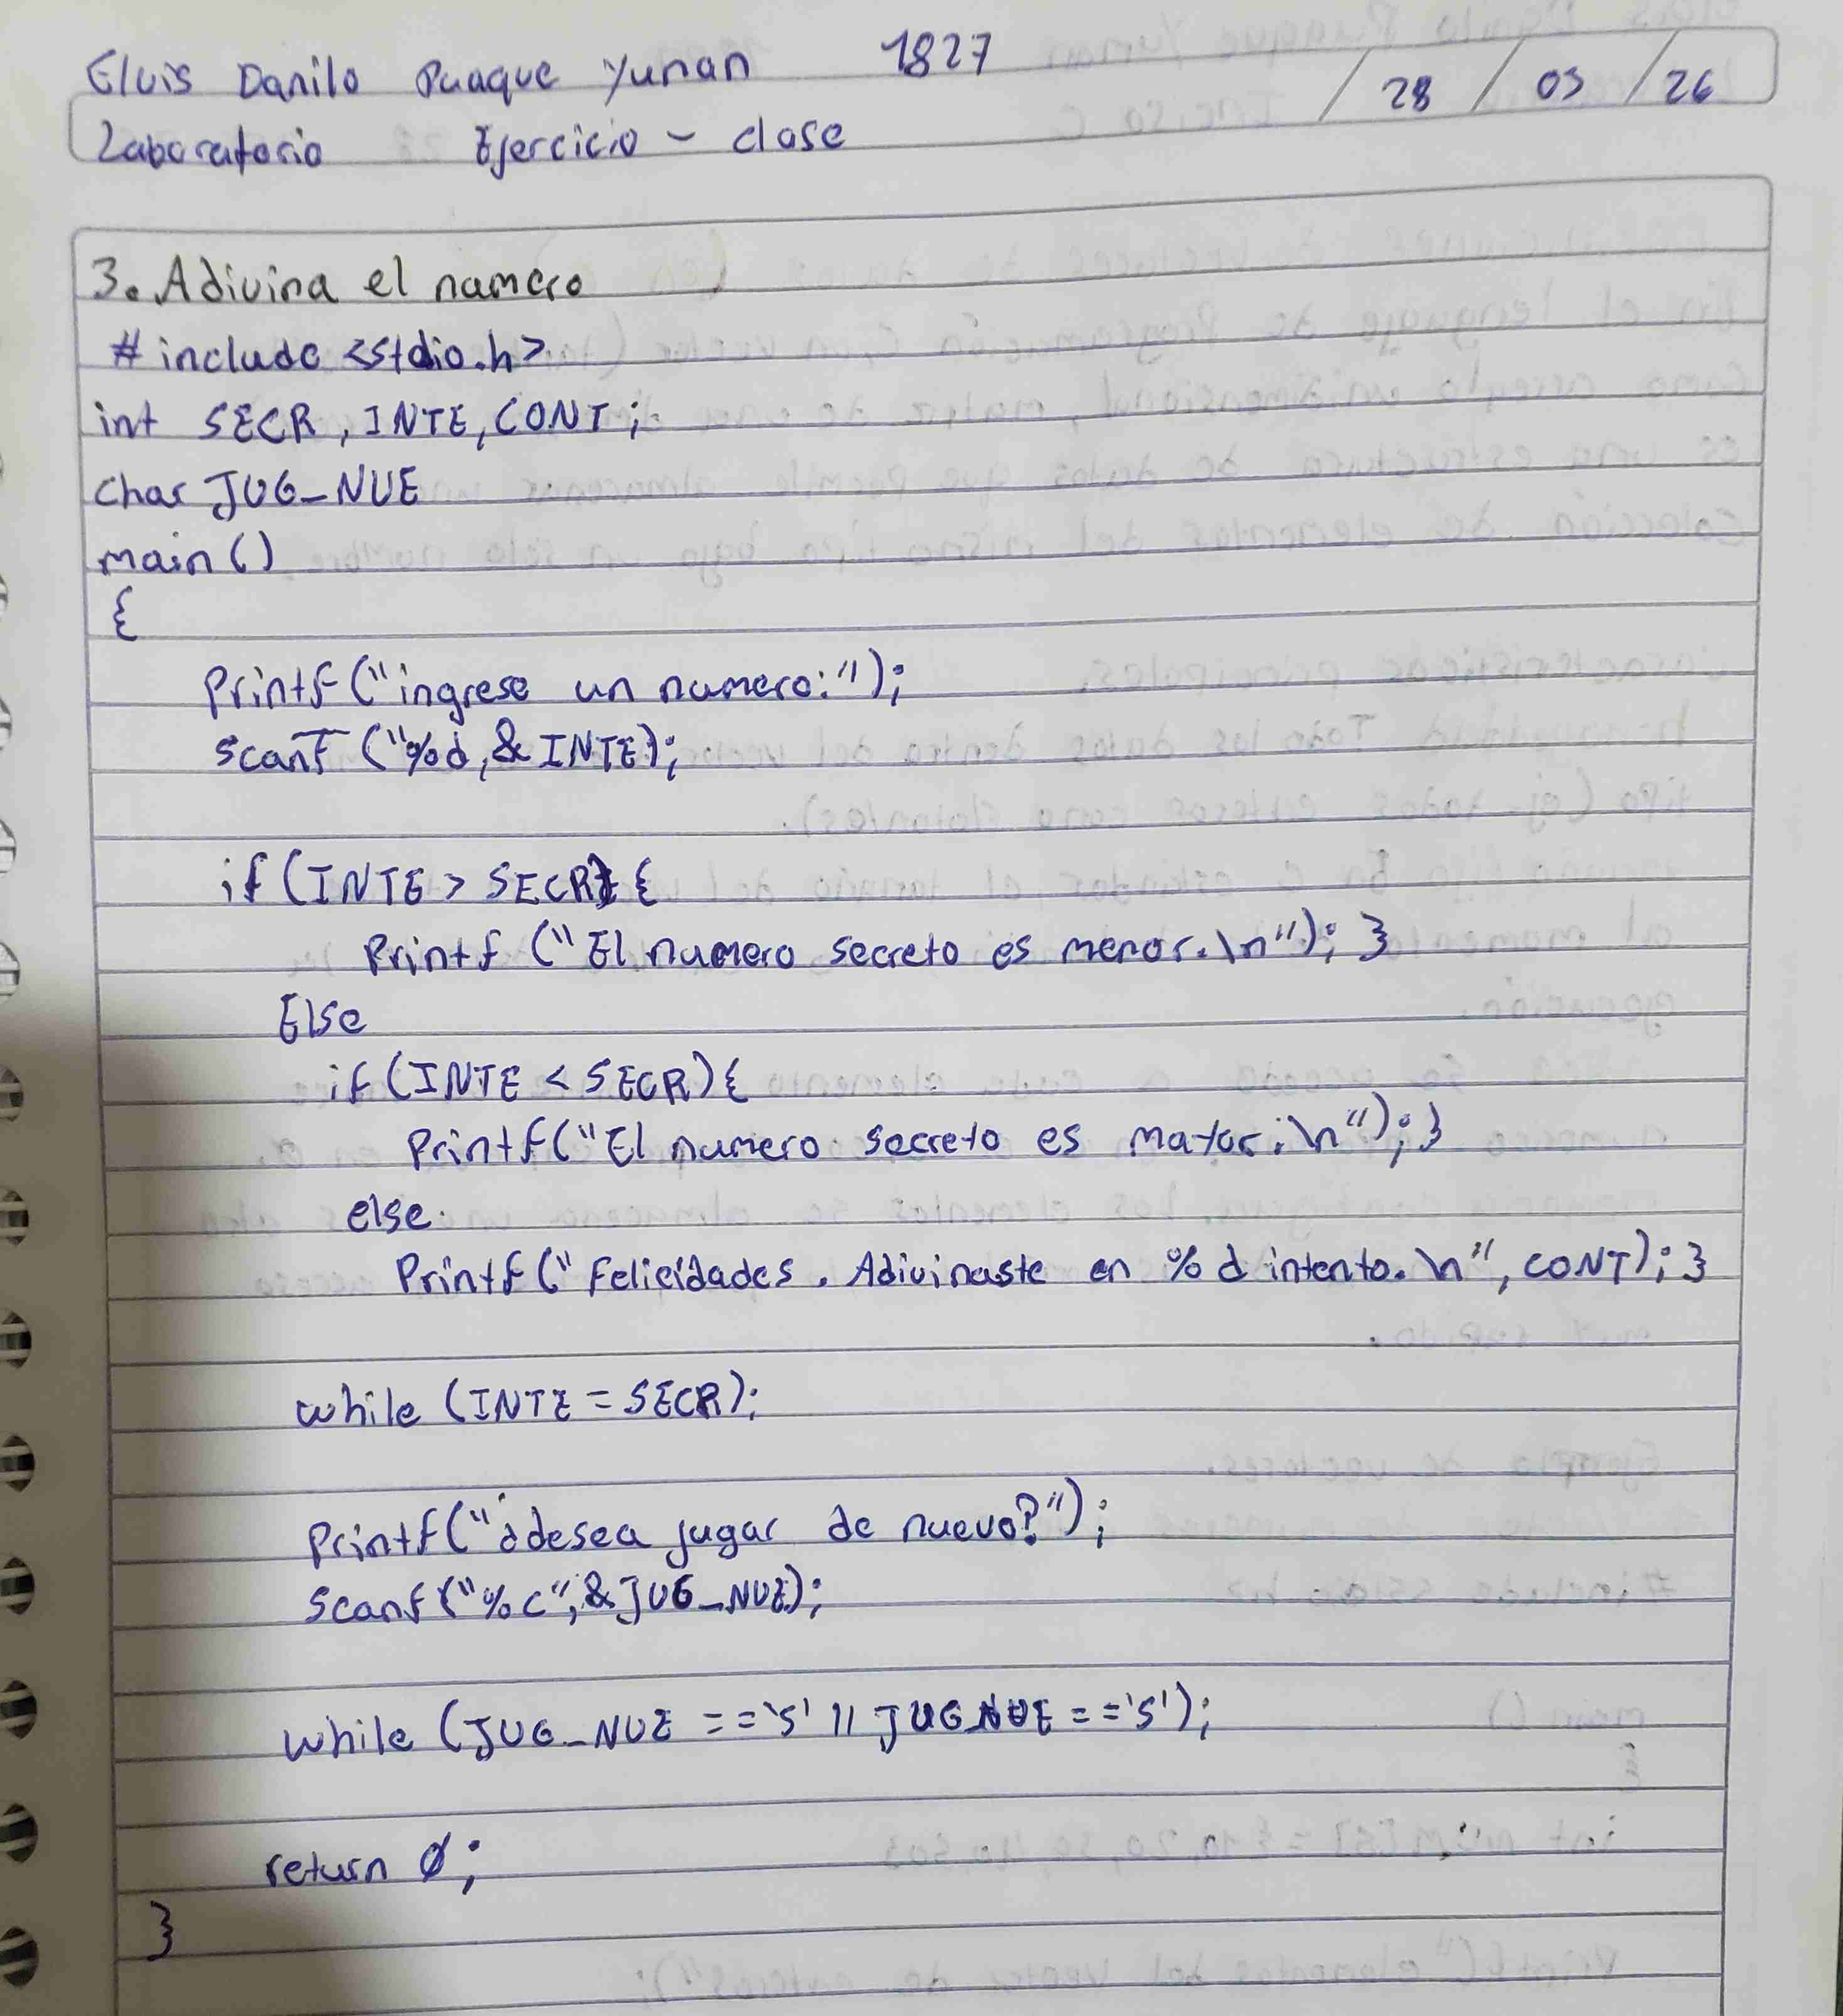 Elvis Danilo Puaque Yunan 1827
/ 28 / 03 / 26
Laboratorio Ejercicio - clase
3. Adivina el numero
# include <stdio.h>
int SECR, INTE, CONT;
char JUG_NUE
main()
{
printf("ingrese un numero:");
scanf ("%d, & INTE);
if (INTE > SECR) {
Printf ("El numero secreto es menor. \n"); }
Else
if (INTE < SECR) {
Printf("El numero secreto es mayor. \n"); }
else
Printf(" Felicidades. Adivinaste en %d intento. \n", CONT); }
while (INTE = SECR);
Printf("¿desea jugar de nuevo?");
Scanf ("%c", & JUG_NUE);
while (JUG_NUE == 's' || JUG_NUE == 's');
return 0;
}